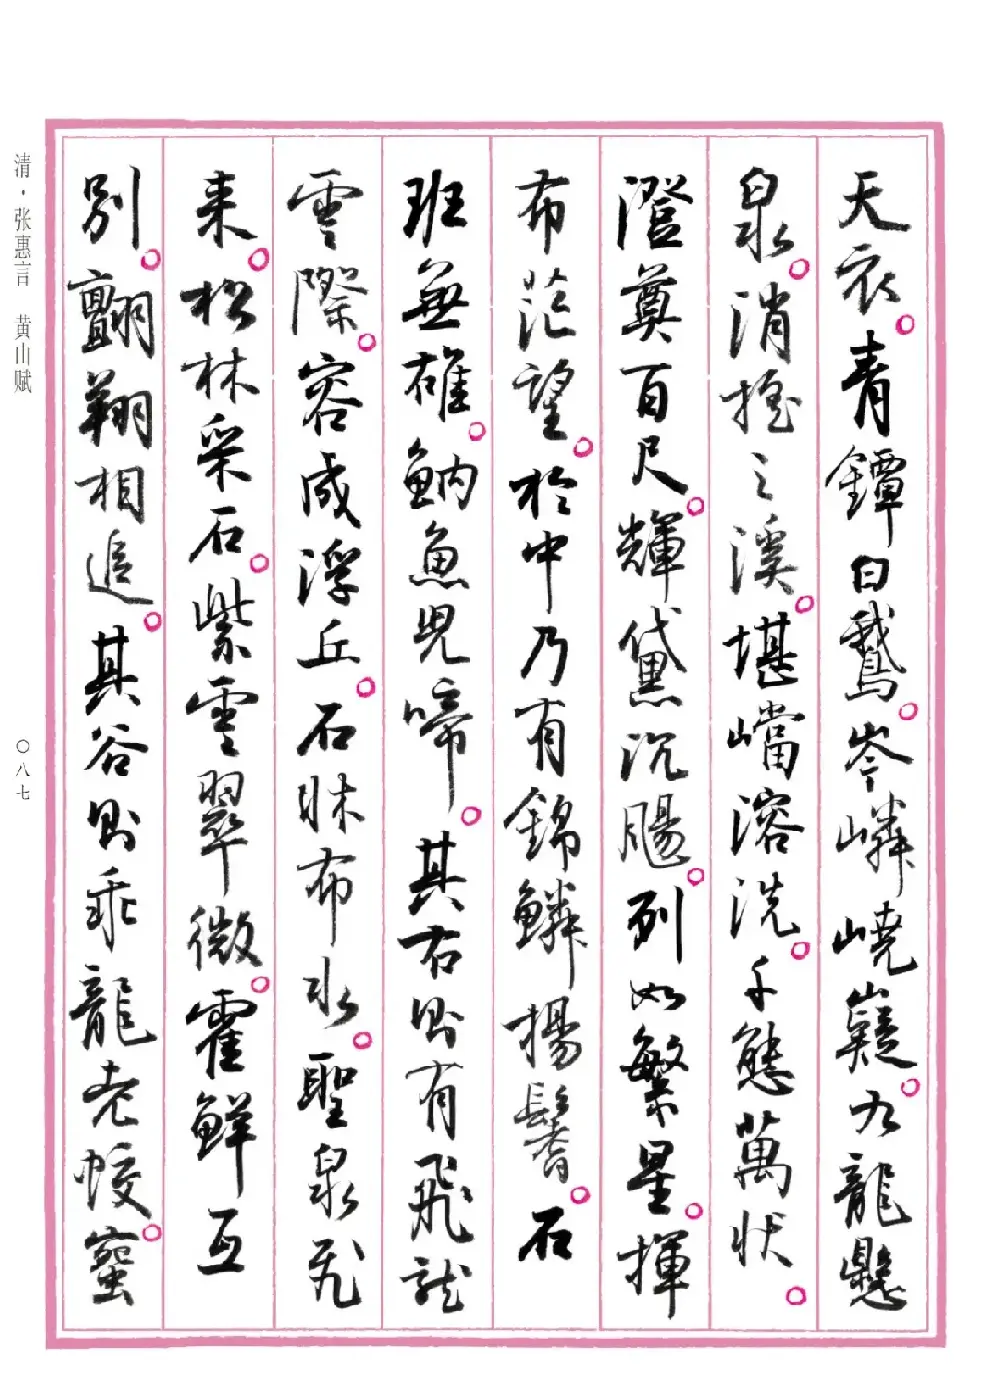 天衣。青鐔白鵝。岑嶙嶢嶷。九龍懸
泉。消搖之溪。堪嶹溶洗。千態萬狀。
澄奠百尺。輝黛沉腸。列如繁星。揮
布茫望。於中乃有錦鱗揚鬐。石
班無雄。魶魚兒啼。其右則有飛龍
雲際。容成浮丘。石牀布水。聖泉飛
來。松林采石。紫雲翠微。霍鮮互
別。翾翔相追。其谷則乖龍老蛟。蠻
清·张惠言 黄山赋
〇八七